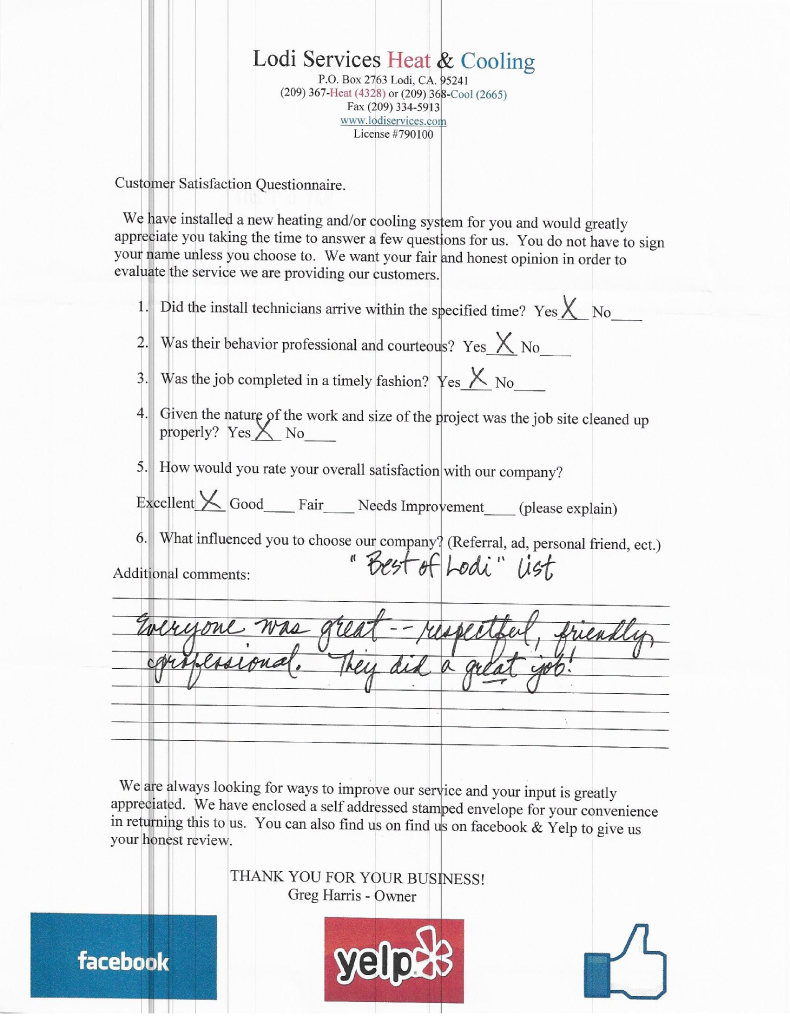 Lodi Services Heat & Cooling
P.O. Box 2763 Lodi, CA. 95241
(209) 367-Heat (4328) or (209) 368-Cool (2665)
Fax (209) 334-5913
www.lodiservices.com
License #790100
Customer Satisfaction Questionnaire.
We have installed a new heating and/or cooling system for you and would greatly
appreciate you taking the time to answer a few questions for us. You do not have to sign
your name unless you choose to. We want your fair and honest opinion in order to
evaluate the service we are providing our customers.
1. Did the install technicians arrive within the specified time? Yes X No____
2. Was their behavior professional and courteous? Yes X No____
3. Was the job completed in a timely fashion? Yes X No____
4. Given the nature of the work and size of the project was the job site cleaned up
properly? Yes X No____
5. How would you rate your overall satisfaction with our company?
Excellent X Good____ Fair____ Needs Improvement____ (please explain)
6. What influenced you to choose our company? (Referral, ad, personal friend, ect.)
"Best of Lodi" list
Additional comments:
Everyone was great -- respectful, friendly,
professional. They did a great job!
We are always looking for ways to improve our service and your input is greatly
appreciated. We have enclosed a self addressed stamped envelope for your convenience
in returning this to us. You can also find us on find us on facebook & Yelp to give us
your honest review.
THANK YOU FOR YOUR BUSINESS!
Greg Harris - Owner
facebook
yelp